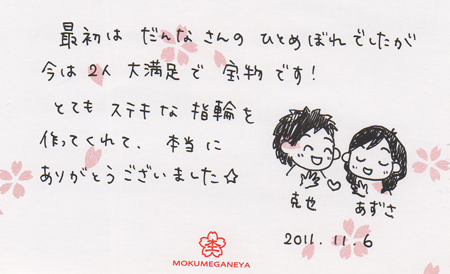 最初は だんなさんの ひとめぼれでしたが
今は2人 大満足で 宝物です!
とても ステキな 指輪を
作ってくれて、本当に
ありがとうございました☆
克也 あずさ
2011.11.6
杢
MOKUMEGANEYA